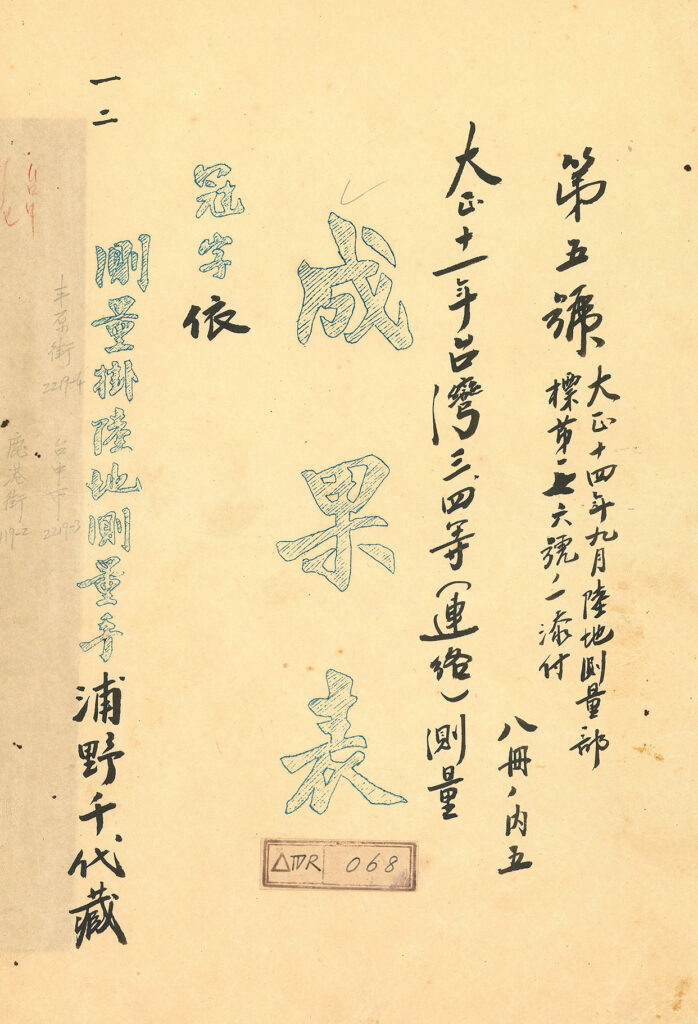 第五號
大正十四年九月陸地測量部
標第一七六號ノ一添付
八冊ノ内五
大正十一年台湾三、四等(連絡)測量
成果表
△ⅣR 068
冠字依
一二
測量掛陸地測量手 浦野千代藏
豐原街
2219-4
台中市
2219-3
鹿港街